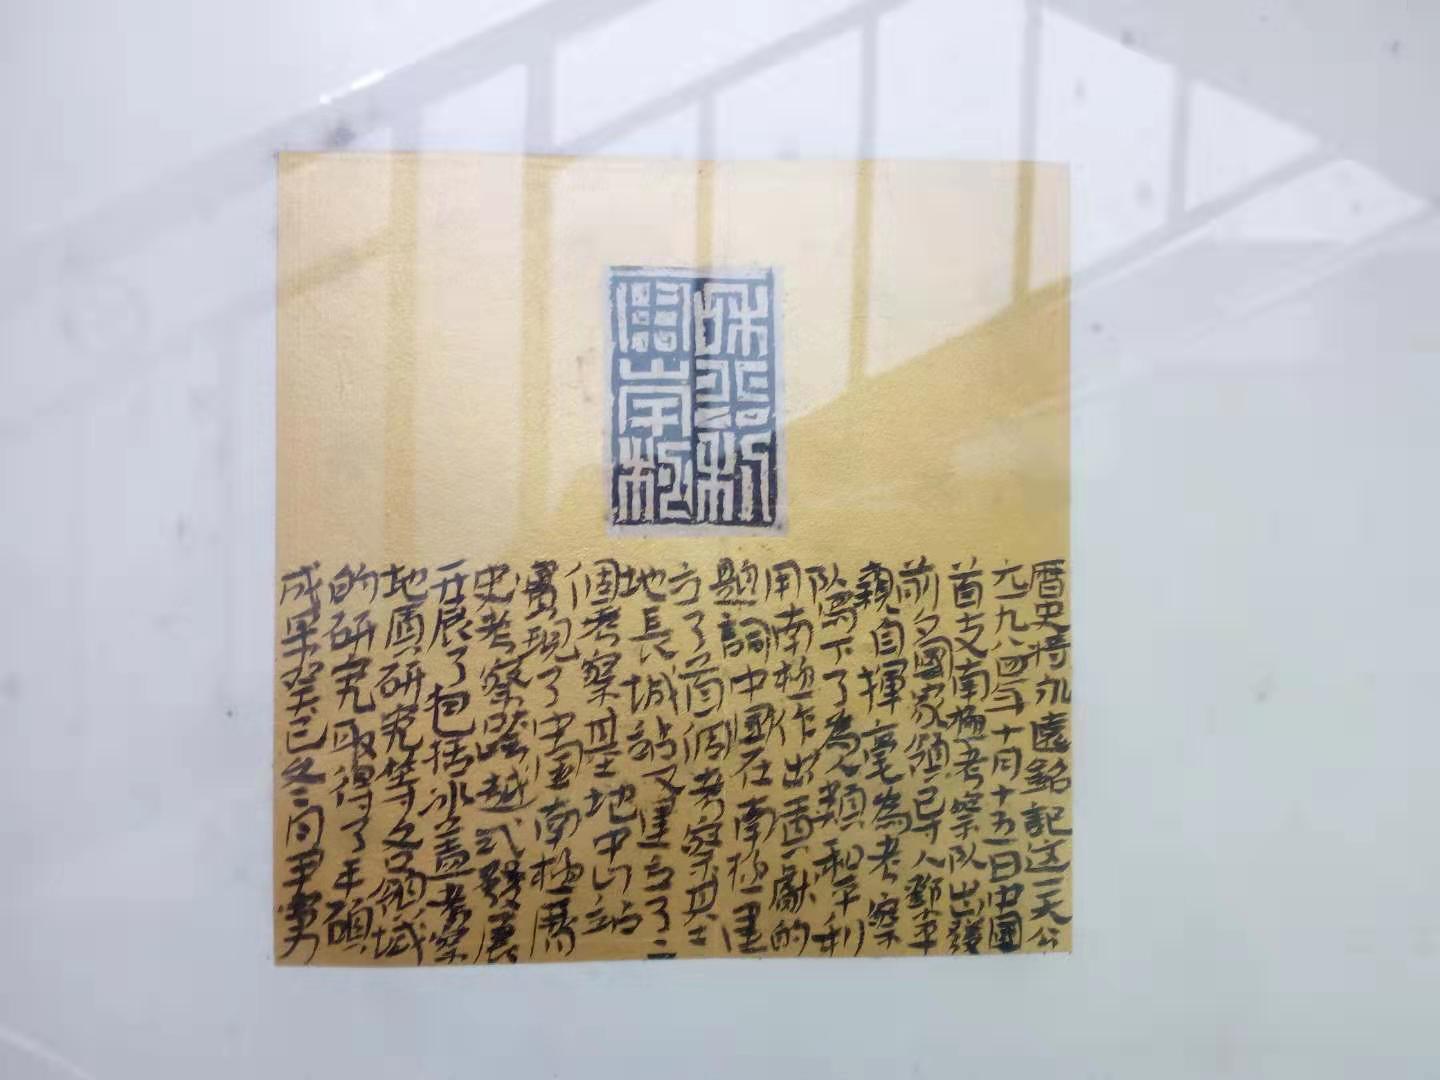 和平利
用南极
曆史將永遠銘記这一天公
元九八四年十月十五日中國
首支南極考察队出發
前夕國家領导人鄧平
親自揮毫為考察
队寫下了為人類和平利
用南極作出貢獻的
題詞中國在南極建
立了首個考察基
地長城站又建立了二
個考察基地中山站
實現了中国南極歷
史考察跨越式發展
开展了包括冰盖考察
地質研究等各領域
的研究取得了丰碩
成果癸已冬